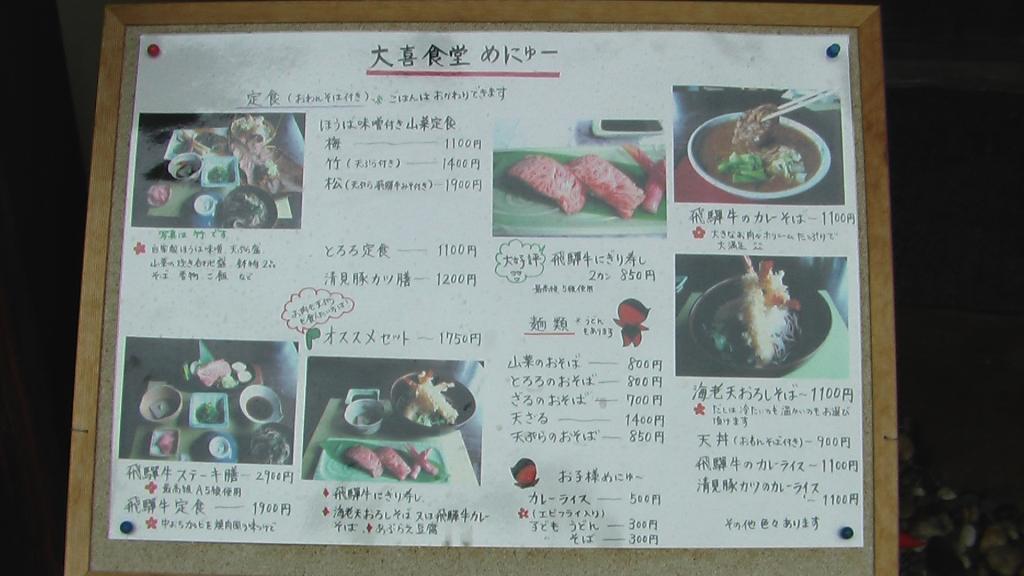 大喜食堂 めにゅー
定食(おわんそば付き) ごはんはおかわりできます
ほうば味噌付き山菜定食
梅 1100円
竹(天ぷら付き) 1400円
松(天ぷら飛騨牛みそ付き) 1900円
写真は 竹 です
自家製ほうば味噌 天ぷら盛
山菜の炊き合わせ盛 小鉢 2コ
そば 香物 ご飯 など
とろろ定食 1100円
清見豚カツ膳 1200円
お肉もすしも
食べたい方は
オススメセット 1750円
飛騨牛ステーキ膳 2900円
最高級 A5級使用
飛騨牛定食 1900円
飛騨牛にぎり寿し
海老天おろしそば 又は 飛騨牛カレー
そば あぶらえ豆腐
大好評 飛騨牛にぎり寿し
2カン 850円
最高級 5級使用
麺類 *うどん
もあります
山菜のおそば 800円
とろろのおそば 800円
ざるのおそば 700円
天ざる 1400円
天ぷらのおそば 850円
お子様めにゅー
カレーライス 500円
(エビフライ入り)
子ども うどん 300円
そば 300円
飛騨牛のカレーそば 1100円
大きなお肉がボリュームたっぷりで
大満足
海老天おろしそば 1100円
だしは 冷たいのも 温かいのも お選び
頂けます
天丼(おわんそば付き) 900円
飛騨牛のカレーライス 1100円
清見豚カツのカレーライス
1100円
その他 色々 あります